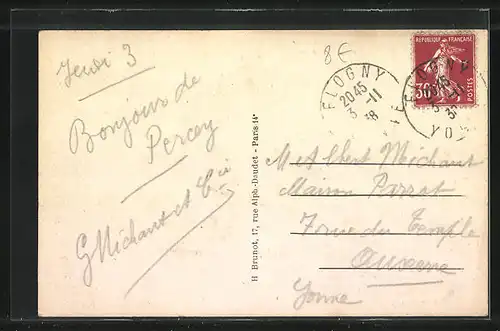 8€
Jeudi 3
Bonjour de
Percey
GMichaut et Cie
H Brunot, 17, rue Alph.-Daudet - Paris 14e
REPUBLIQUE FRANCAISE
30c
POSTES
FLOGNY
2045
3 -11
38
FLOGNY
2045
3 -11
YO
M Albert Michaut
Maison
7 rue du Temple
Auxerre
Yonne